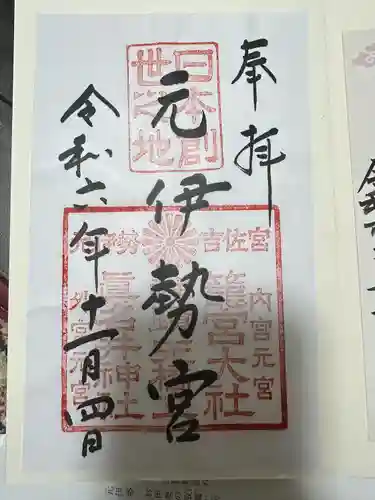 奉拝
元伊勢宮
令和六年十一月四日
日本創
世之地
内宮元宮
籠宮大社
眞名井神社
外宮元宮
吉佐宮